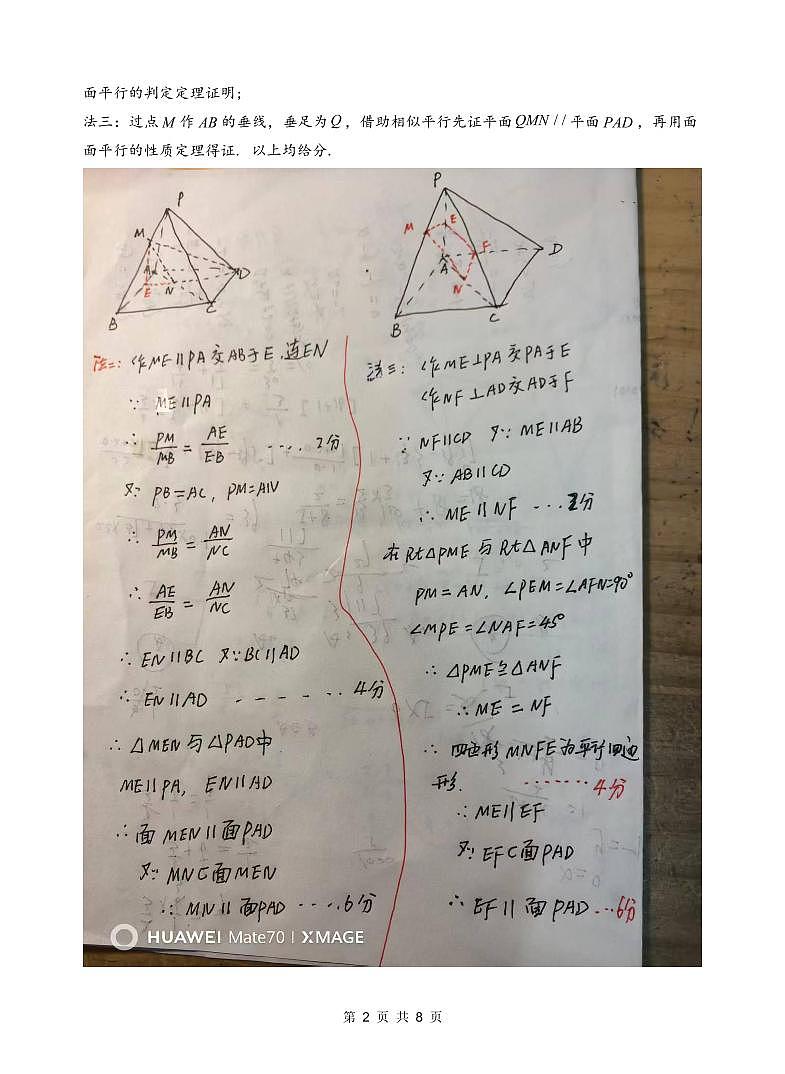 面平行的判定定理证明；
法三：过点 M 作 AB 的垂线，垂足为 Q，借助相似平行先证平面 QMN // 平面 PAD，再用面
面平行的性质定理得证. 以上均给分.
P
M
A
D
E
N
B
C
P
M
E
F
D
A
N
B
C
法二：作ME∥PA交AB于E，连EN
∵ ME∥PA
∴ PM/MB = AE/EB ····2分
又∵ PB=AC，PM=AN
∴ PM/MB = AN/NC
∴ AE/EB = AN/NC
∴ EN∥BC 又∵BC∥AD
∴ EN∥AD - - - - - ··4分
∴ △MEN与△PAD中
ME∥PA，EN∥AD
∴ 面MEN∥面PAD
又∵ MN⊂面MEN
∴ MN∥面PAD ····6分
法三：作ME⊥PA交PA于E
作NF⊥AD交AD于F
∵ NF∥CD 又∵ ME∥AB
又∵ AB∥CD
∴ ME∥NF ···2分
在Rt△PME与Rt△ANF中
PM=AN，∠PEM=∠AFN=90°
∠MPE=∠NAF=45°
∴ △PME≌△ANF
∴ ME=NF
∴ 四边形MNFE为平行四边
形. ·······4分
∴ ME∥EF
又∵ EF⊂面PAD
∴ EF∥面PAD ···6分
HUAWEI Mate70 | XMAGE
第 2 页 共 8 页